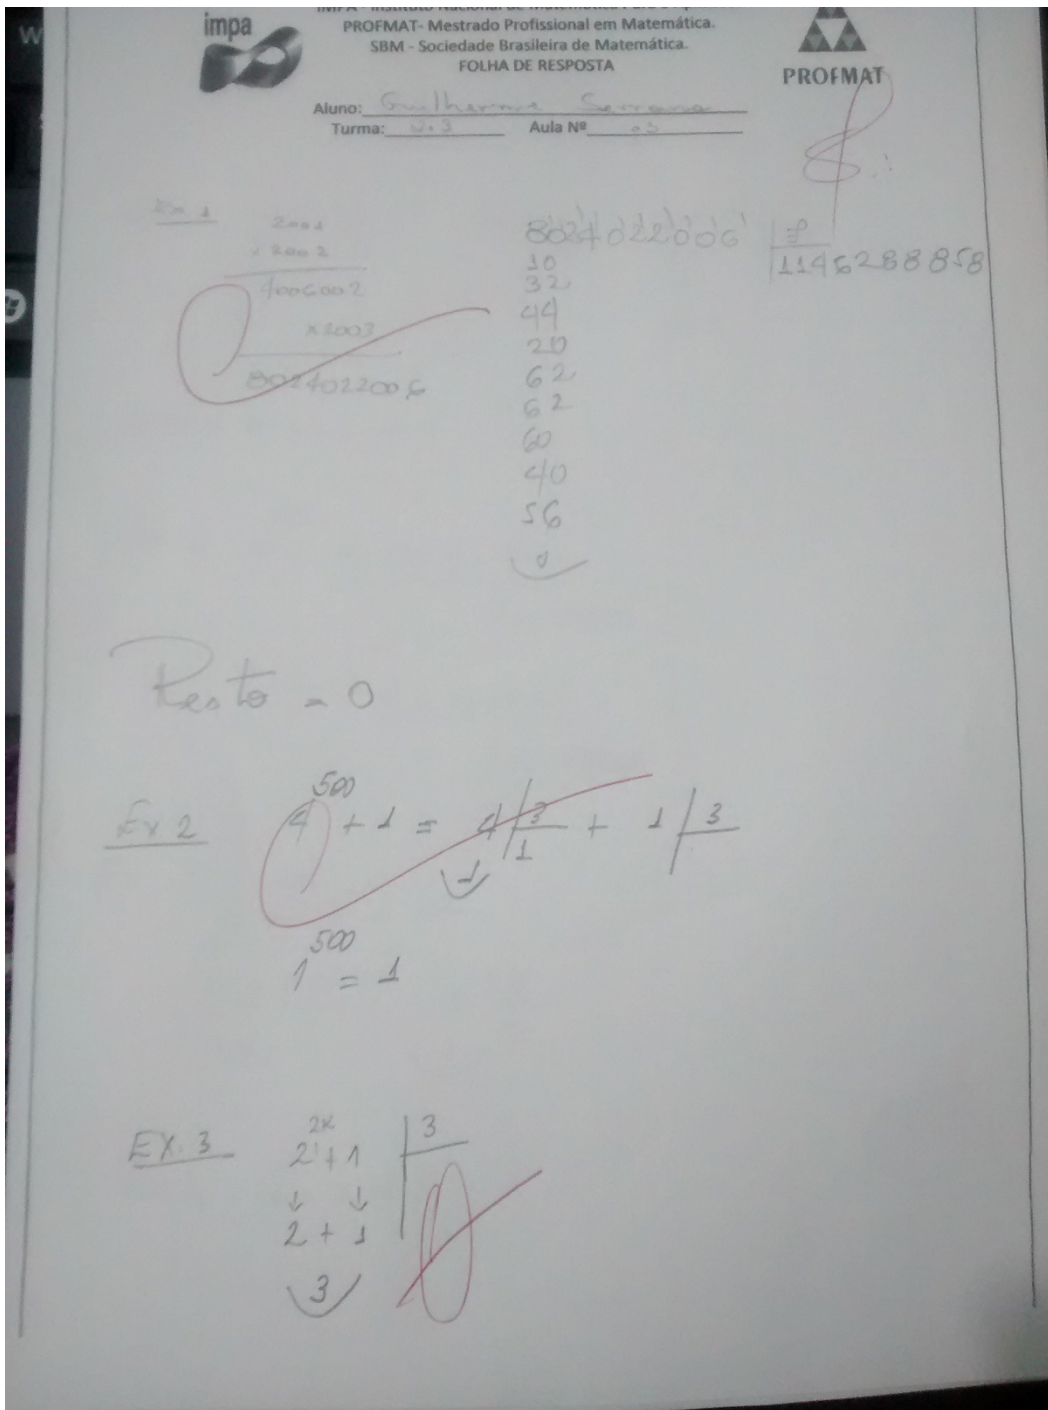 W
impa
PROFMAT- Mestrado Profissional em Matemática.
SBM - Sociedade Brasileira de Matemática.
FOLHA DE RESPOSTA
PROFMAT
Aluno: Guilherme
Turma: Aula Nº
Ex 1
x 2002
4006002
x2003
8024022006
8024022006
1146288858
10
32
44
20
62
62
60
40
56
0
Resto = 0
Ex 2 4^500 + 1 = 4 | 3 + 1 | 3
1 1
1^500 = 1
EX. 3 2^2k + 1 | 3
↓ ↓
2 + 1
3